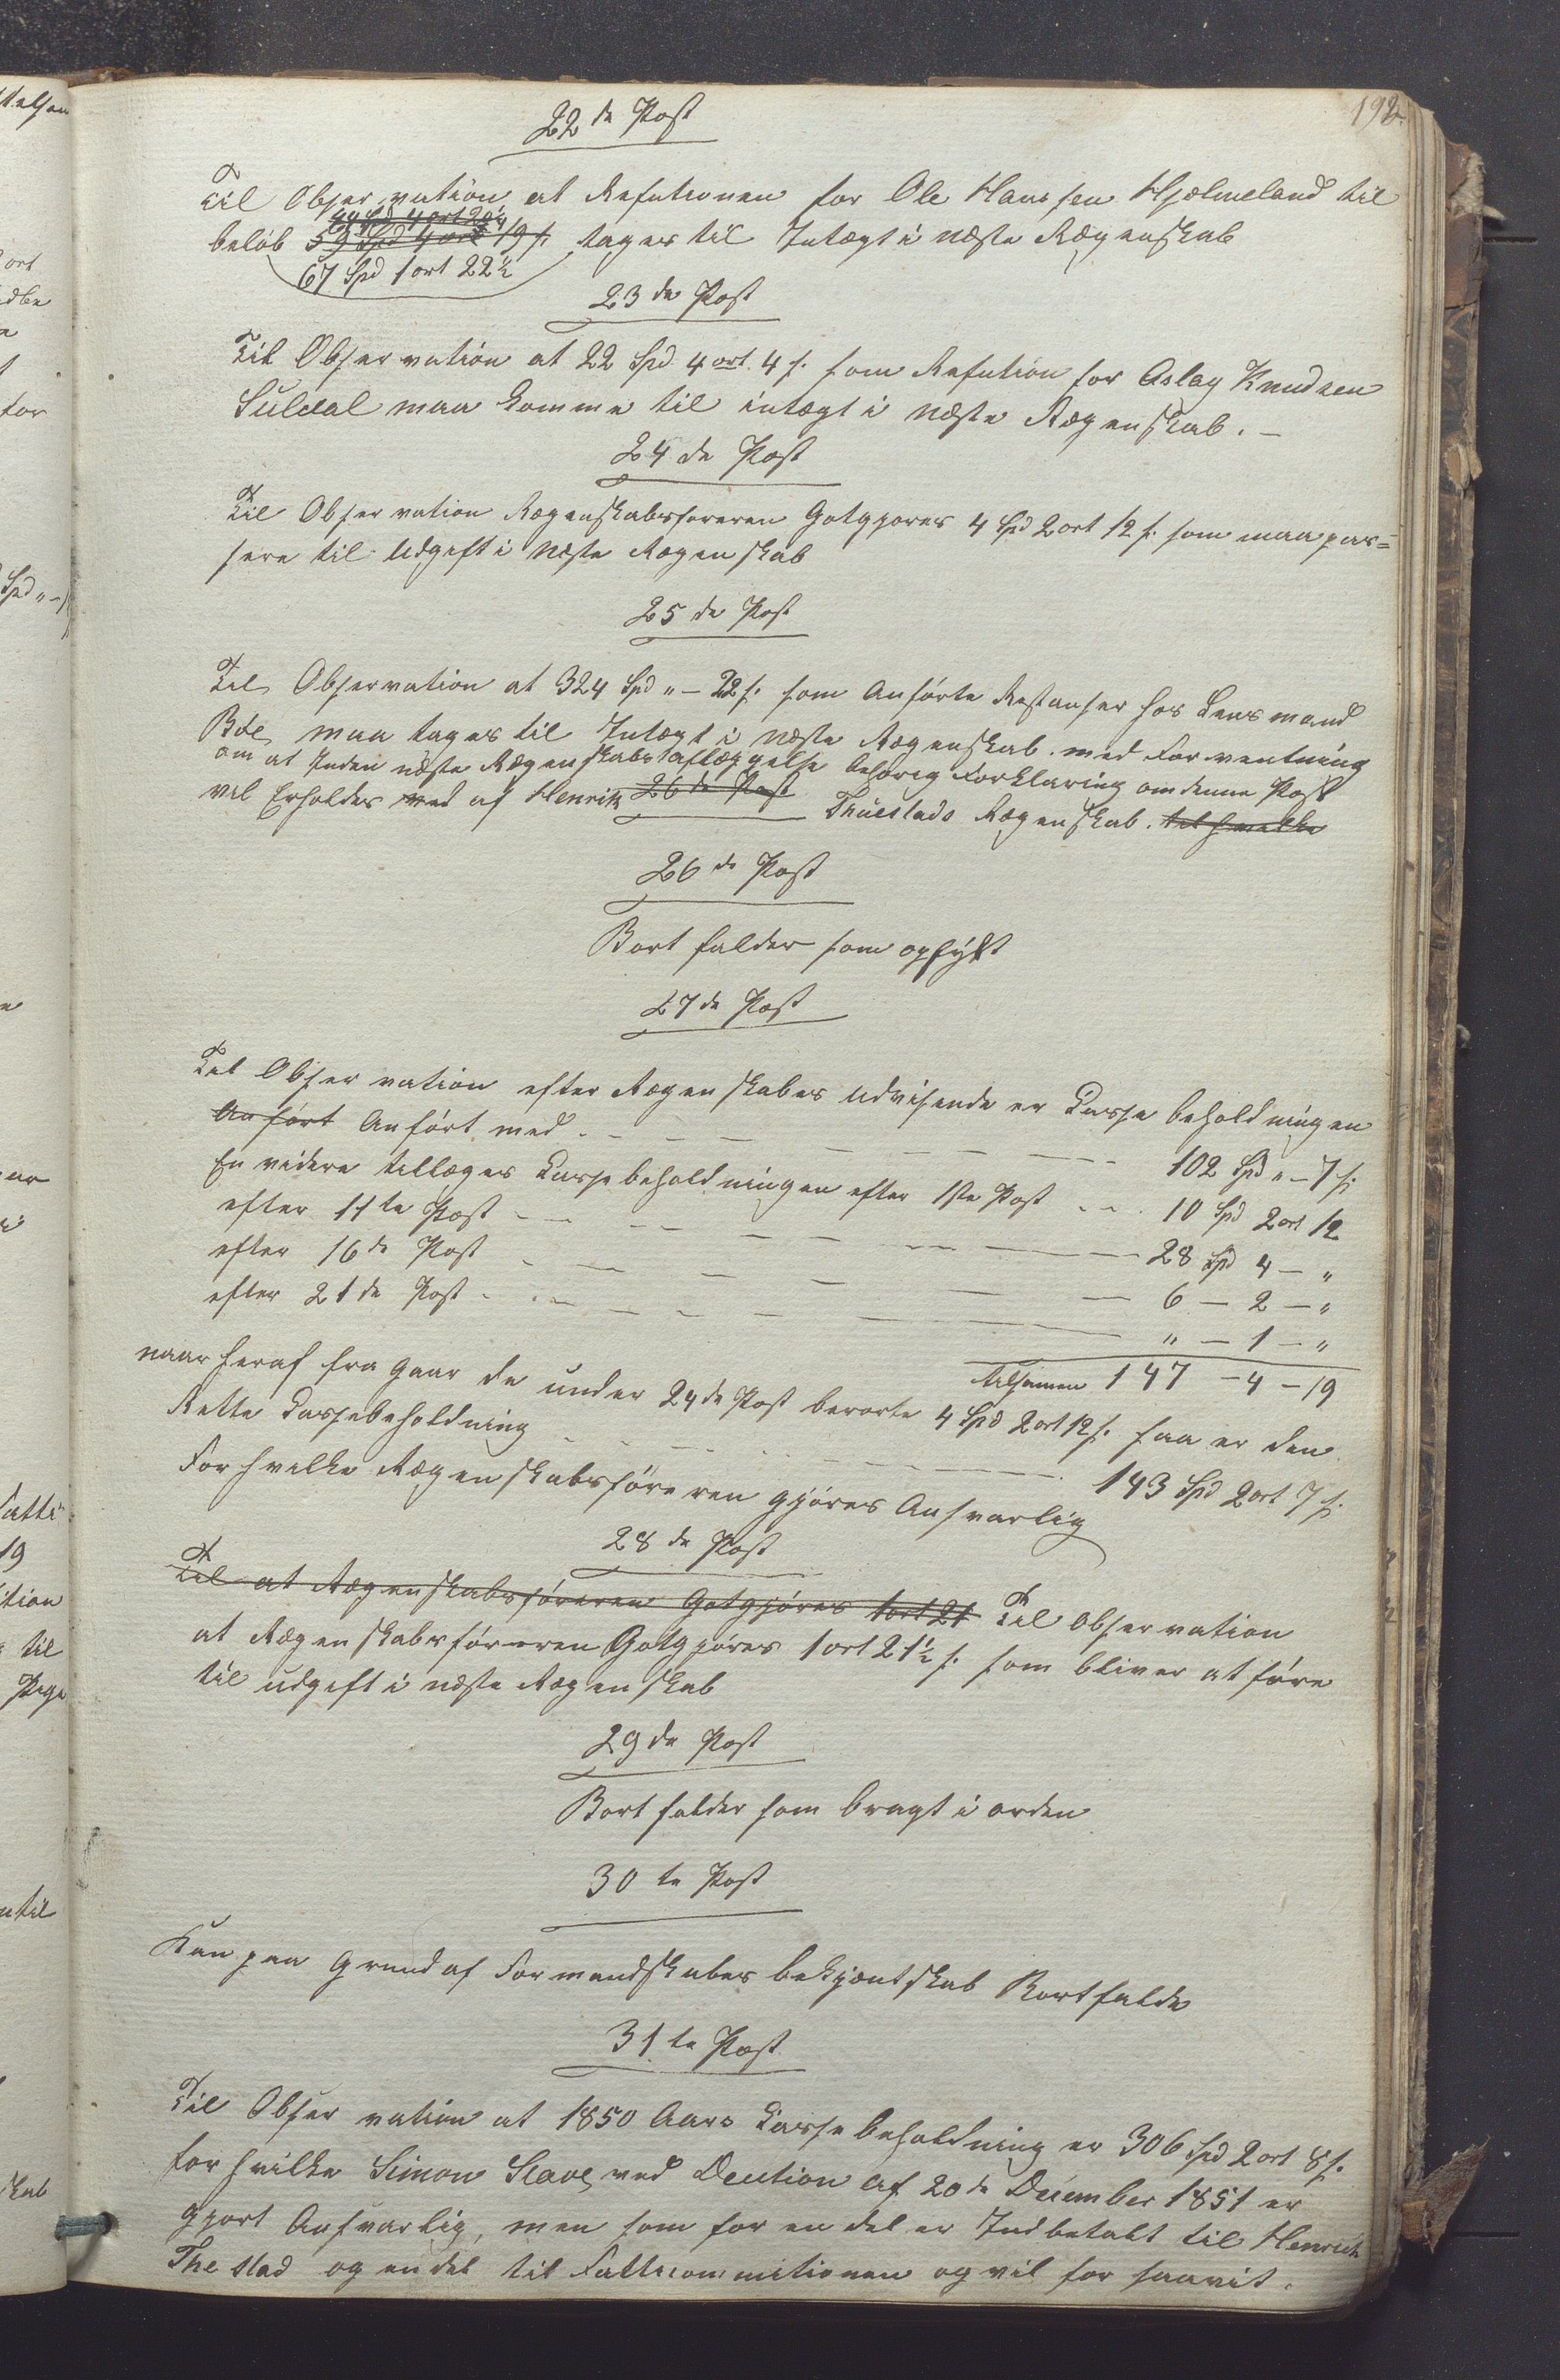 192.
22de Post
Til Observation at Refutionen for Ole Hanssen Hjelmeland til
64 Spd 4 ort 20¼
beløb 59 Spd 4 ort 19 s. tages til Intægt i næste Regenskab
67 Spd 1 ort 22½
23de Post
Til Observation at 22 Spd 4 ort. 4 s. som Refution for Aslag Knudsen
Suldal maa komme til intægt i næste Regenskab. –
24de Post
Til Observation Regenskabsføreren Gotgjøres 4 Spd 2 ort 12 s. som maa pas=
sere til Udgift i næste Regenskab
25de Post
Til Observation at 324 Spd " – 22 s. som Anførte Restanser hos Lensmand
Bøe maa tages til Intægt i næste Regenskab. med Forventning
om at Inden næste Regenskabs aflæggelse behørig Forklaring om denne Post
vil Erholdes ved af Henrik 26de Post Thuestads Regenskab. til hvilke
26de Post
Bort falder som opfyldt
27de Post
Til Observation efter Regenskabes Udvisende er Casse beholdningen
Anført Anført med - - - - - - 102 Spd " – 7 s.
En videre tillæges Cassebeholdningen efter 1ste Post - - 10 Spd 2 ort 12
efter 11te Post - - - - - 28 Spd 4 – "
efter 16de Post - - - - - 6 – 2 – "
efter 21de Post - - - - - " – 1 – "
Tilsamen 147 – 4 – 19
naar heraf fra gaar de under 24de Post berørte 4 Spd 2 ort 12 s. saa er den
Rette Cassebeholdning - - - - - 143 Spd 2 ort 7 s.
For hvilke Regenskabsføreren gjøres Ansvarlig
28de Post
Til at Regenskabsføreren Gotgjøres 1 ort 21 Til Observation
at Regenskabsføreren Gotgjøres 1 ort 21½ s. som bliver at føre
til udgift i næste Regenskab
29de Post
Bort falder som bragt i orden
30te Post
Kan paa Grund af Formandskabes bekjentskab Bortfalde
31te Post
Til Observation at 1850 Aars Casse beholdning er 306 Spd 2 ort 8 s.
for hvilke Simon ved Decition af 20de December 1851 er
gjort Ansvarlig, men som for en del er Indbetalt til Henrich
Thestad og en del til Fattecommitionen og vil for saavit.